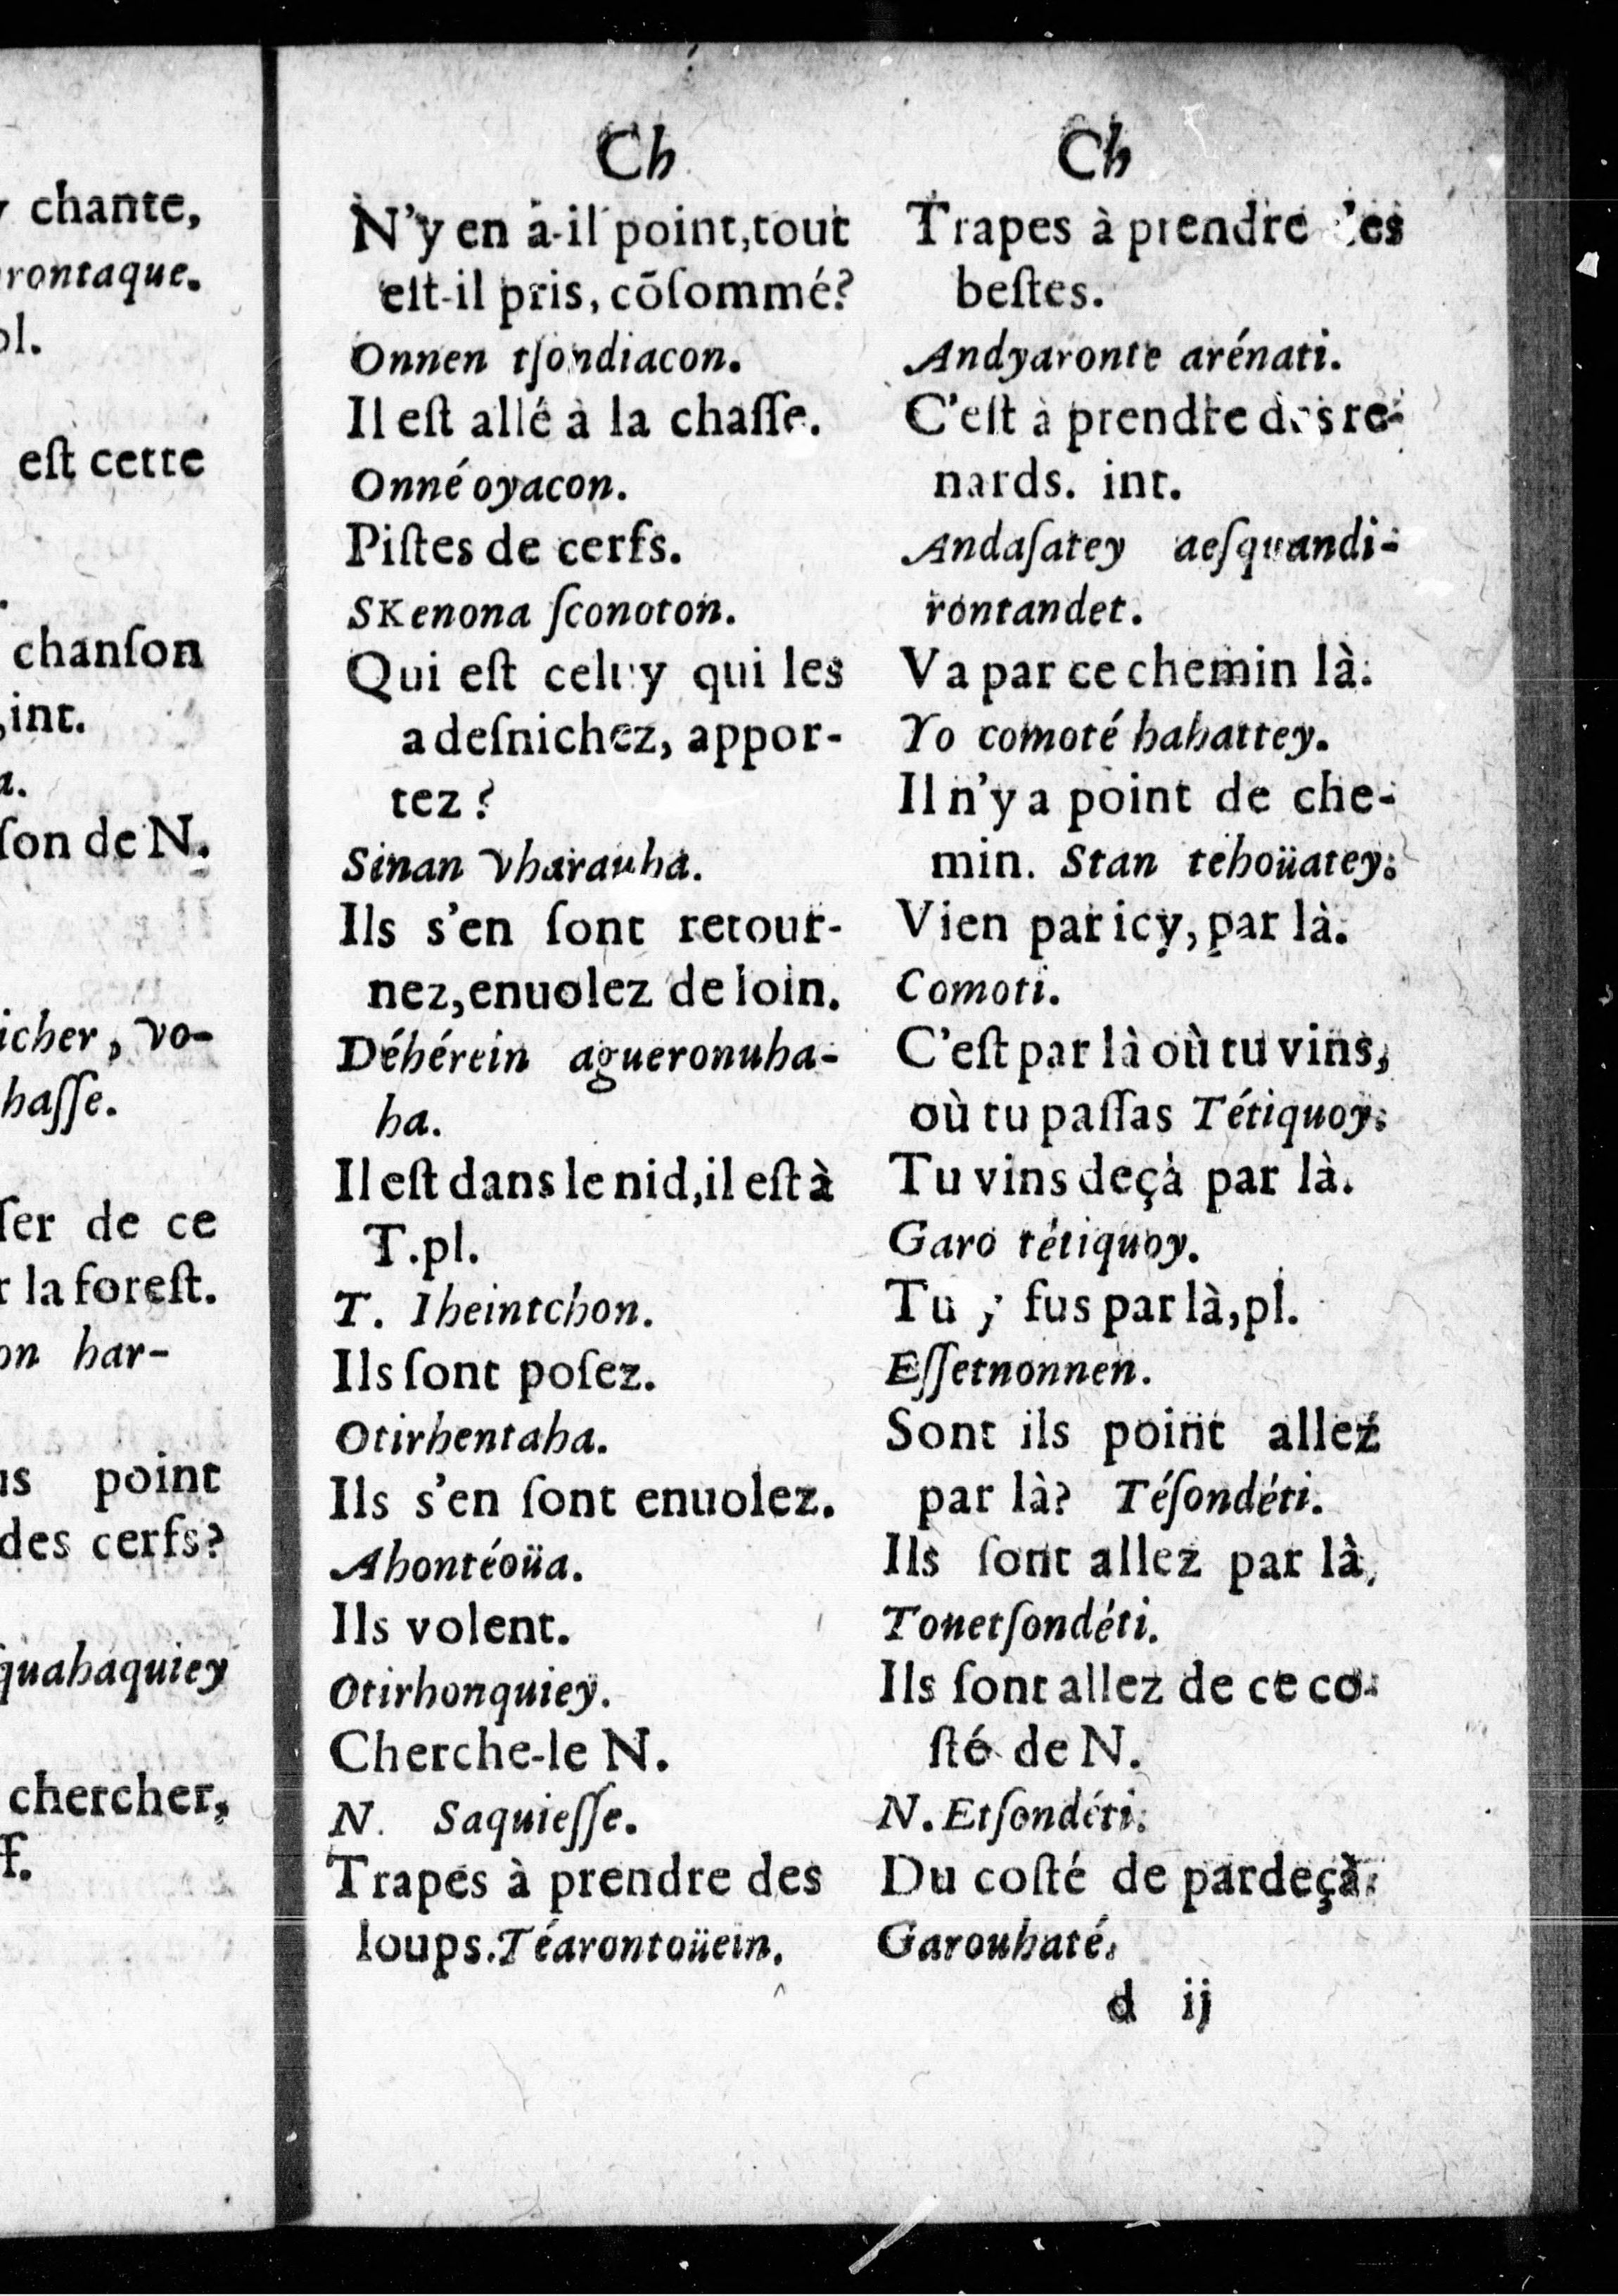 y chante,
rontaque.
pl.
est cette
chanſon
,int.
a.
ſon de N.
icher, vo-
haſſe.
ſer de ce
r la foreſt.
on har-
us point
des cerfs?
quahaquiey
chercher,
f.
Ch
N'y en a-il point, tout
eſt-il pris, cõſommé?
Onnen tſondiacon.
Il eſt allé à la chaſſe.
Onné oyacon.
Piſtes de cerfs.
SKenona ſconoton.
Qui eſt celuy qui les
a deſnichez, appor-
tez?
Sinan vharauha.
Ils s'en ſont retour-
nez, enuolez de loin.
Déhérein agueronuha-
ha.
Il eſt dans le nid, il eſt à
T. pl.
T. Iheintchon.
Ils ſont poſez.
Otirhentaha.
Ils s'en ſont enuolez.
Ahontéoüa.
Ils volent.
Otirhonquiey.
Cherche-le N.
N. Saquieſſe.
Trapes à prendre des
loups. Téarontoüein.
Ch
Trapes à prendre des
beſtes.
Andyaronte arénati.
C'eſt à prendre des re-
nards. int.
Andaſatey aeſquandi-
rontandet.
Va par ce chemin là.
Yo comoté hahattey.
Il n'y a point de che-
min. Stan tehoüatey.
Vien par icy, par là.
Comoti.
C'eſt par là où tu vins,
où tu paſſas Tétiquoy.
Tu vins deçà par là.
Garo tétiquoy.
Tu y fus par là, pl.
Eſſetnonnen.
Sont ils point allez
par là? Téſondéti.
Ils ſont allez par là,
Tonetſondéti.
Ils ſont allez de ce co-
ſté de N.
N. Etſondéti.
Du coſté de pardeçà.
Garouhaté.
d ij